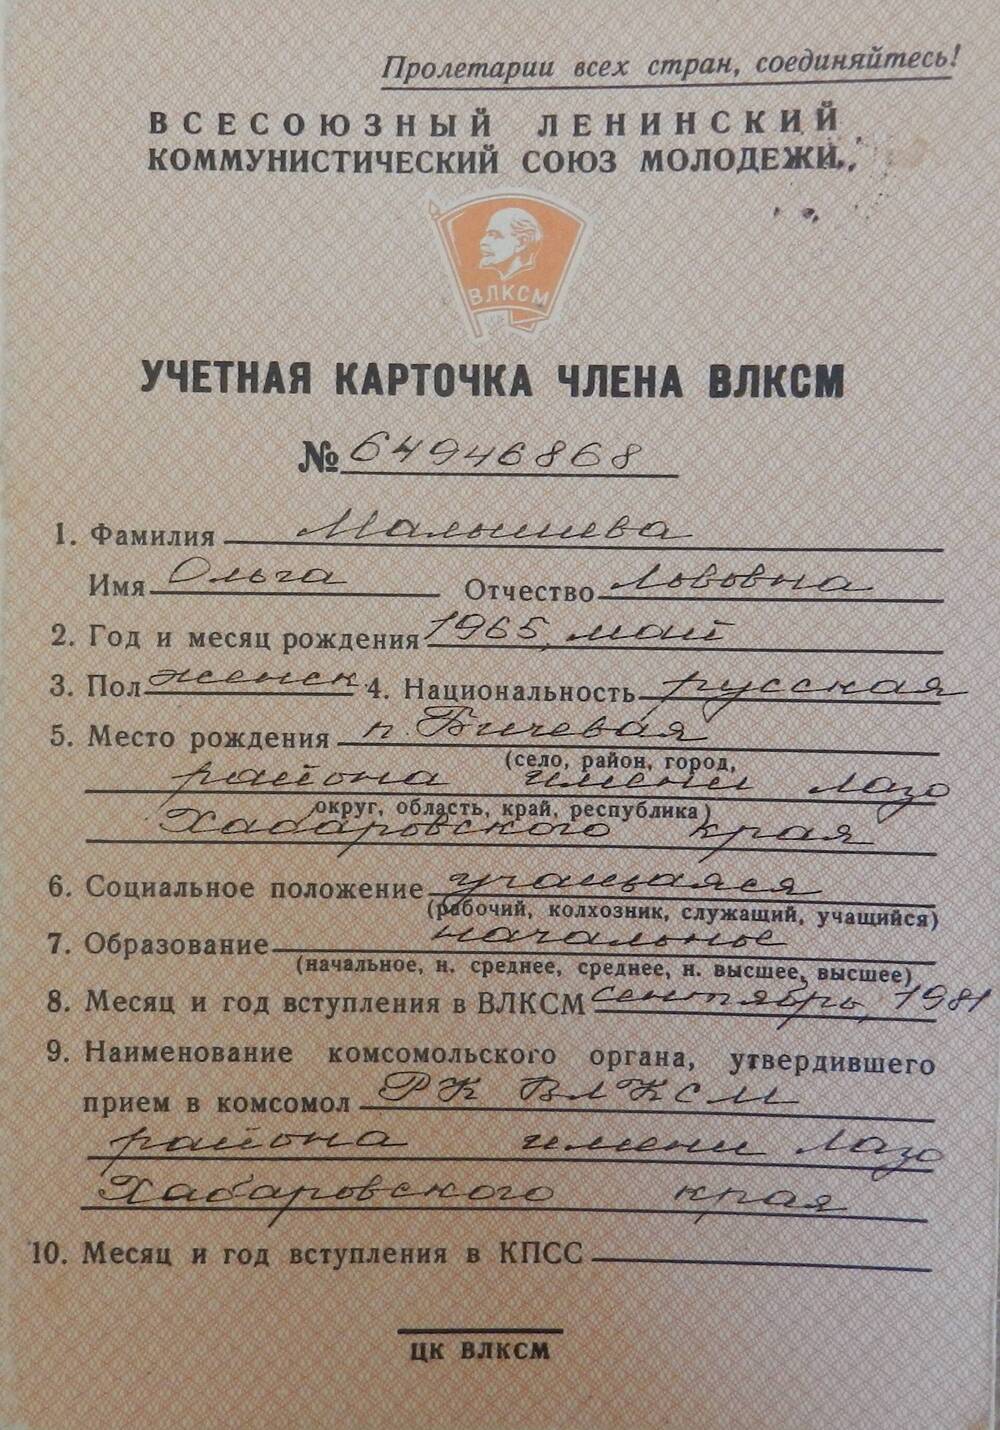 Пролетарии всех стран, соединяйтесь!
ВСЕСОЮЗНЫЙ ЛЕНИНСКИЙ
КОММУНИСТИЧЕСКИЙ СОЮЗ МОЛОДЕЖИ
ВЛКСМ
УЧЕТНАЯ КАРТОЧКА ЧЛЕНА ВЛКСМ
№ 64946868
1. Фамилия Малышева
Имя Ольга Отчество Львовна
2. Год и месяц рождения 1965, май
3. Пол женск 4. Национальность русская
5. Место рождения п. Бичевая
(село, район, город,
района имени Лазо
округ, область, край, республика)
Хабаровского края
6. Социальное положение учащаяся
(рабочий, колхозник, служащий, учащийся)
7. Образование начальное
(начальное, н. среднее, среднее, н. высшее, высшее)
8. Месяц и год вступления в ВЛКСМ сентябрь, 1981
9. Наименование комсомольского органа, утвердившего
прием в комсомол РК ВЛКСМ
района имени Лазо
Хабаровского края
10. Месяц и год вступления в КПСС
ЦК ВЛКСМ